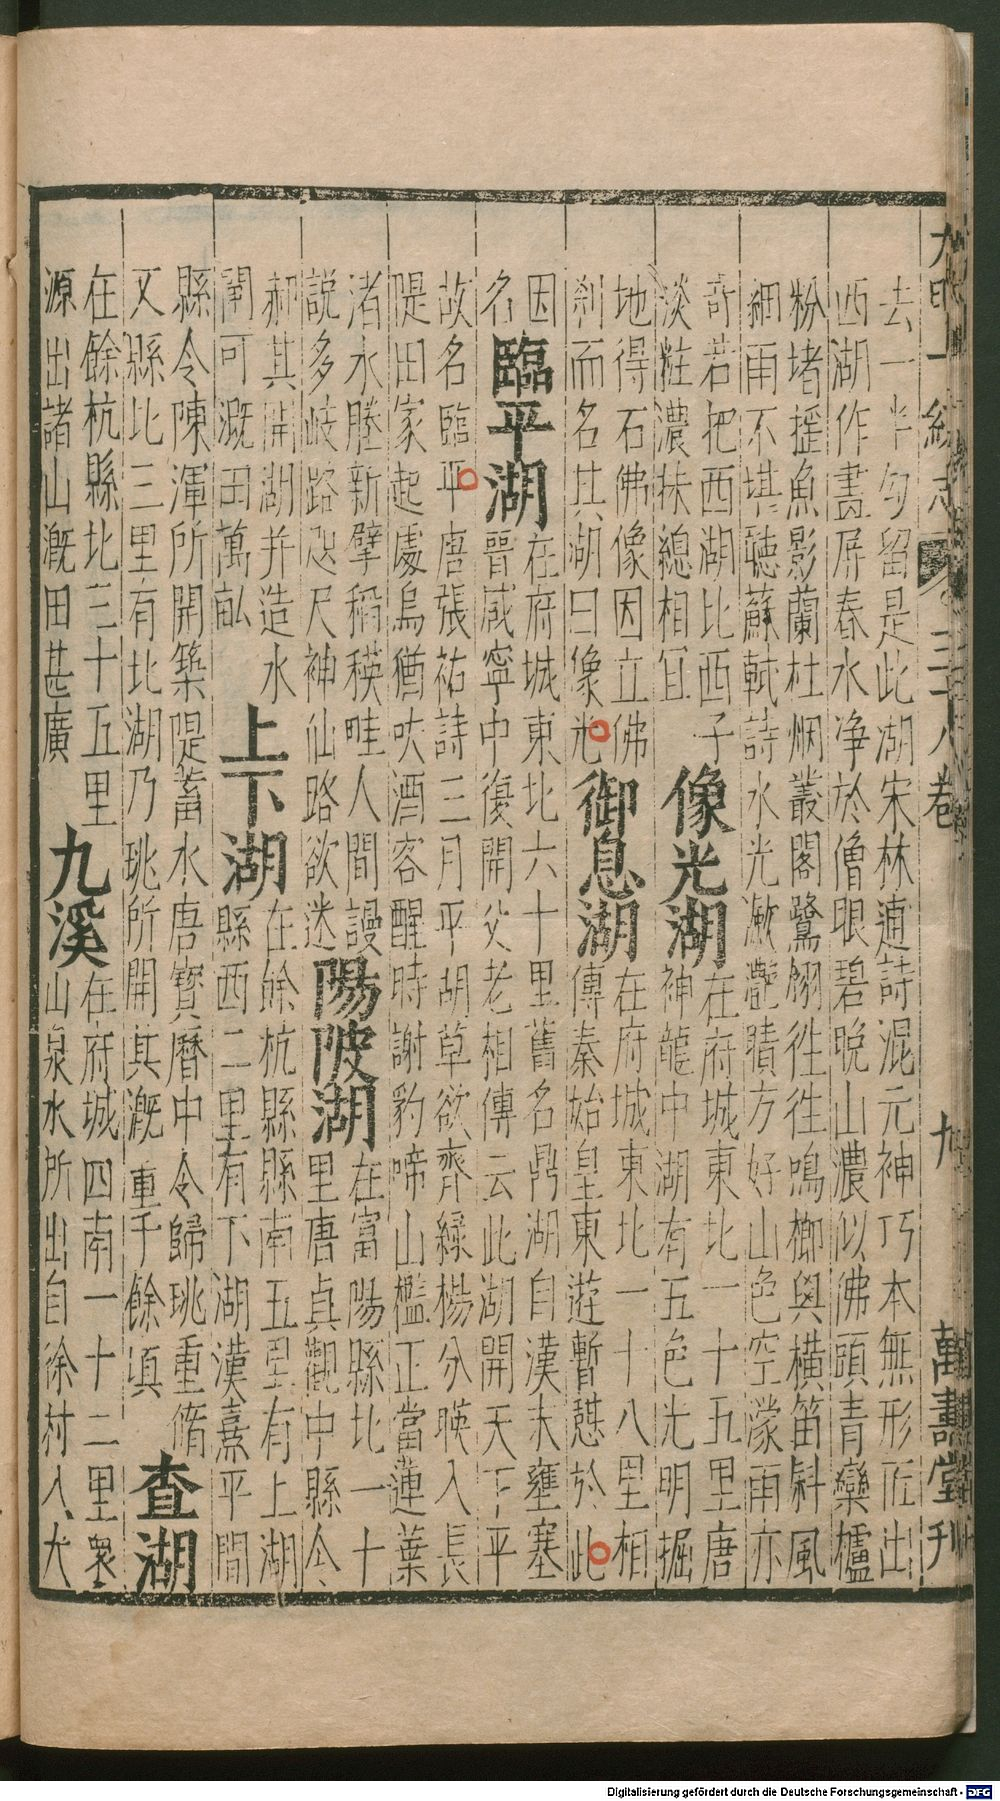 大明一統志 三十八卷 九 萬壽堂刊
去一半勾留是此湖宋林逋詩混元神巧本無形匠出
西湖作畫屏春水净於僧眼碧晚山濃似佛頭青欒櫨
粉堵揺魚影蘭杜烟叢閣鷺翎徃徃鳴榔與横笛斜風
細雨不堪聽蘇軾詩水光瀲灩晴方好山色空濛雨亦
竒若把西湖比西子
淡粧濃抹總相宜
像光湖
在府城東北一十五里唐
神龍中湖有五色光明掘
地得石佛像因立佛
刹而名其湖曰像光
御息湖
在府城東北一十八里相
傳秦始皇東遊暫憇於此
因
名
臨平湖
在府城東北六十里舊名鼎湖自漢末壅塞
晉咸寧中復開父老相傳云此湖開天下平
故名臨平唐張祐詩三月平湖草欲齊緑楊分暎入長
隄田家起處烏猶吠酒客醒時謝豹啼山檻正當蓮葉
渚水塍新擘稻秧畦人間謾
説多岐路咫尺神仙路欲迷
陽陂湖
在富陽縣北一十
里唐貞觀中縣令
郝其開湖并造水
閘可溉田萬畝
上下湖
在餘杭縣縣南五里有上湖
縣西二里有下湖漢熹平間
縣令陳渾所開築隄蓄水唐寳曆中令歸珧重脩
又縣北三里有北湖乃珧所開其溉田千餘頃
查湖
在餘杭縣北三十五里
源出諸山溉田甚廣
九溪
在府城西南一十二里衆
山泉水所出自徐村入大
Digitalisierung gefördert durch die Deutsche Forschungsgemeinschaft - DFG